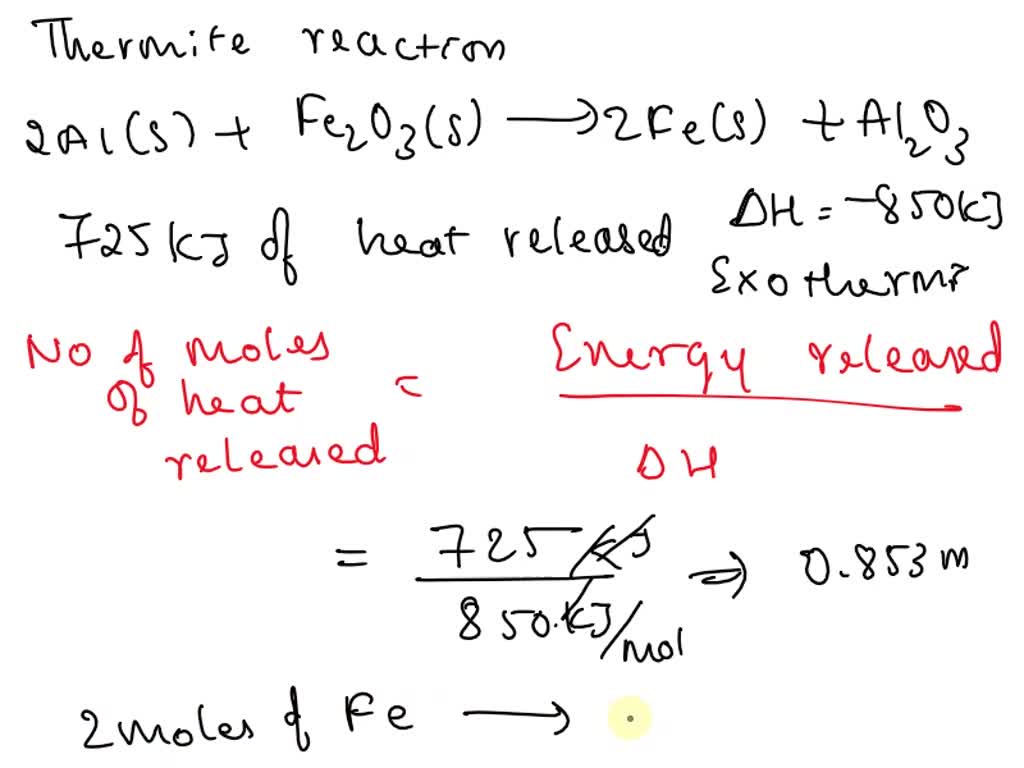 Thermite reaction
2Al(s) + Fe₂O₃(s) → 2Fe(s) + Al₂O₃
725 kJ of heat released ΔH = -850kJ
Exotherm
No of moles of heat released = Energy released
ΔH
= 725 kJ ⇒ 0.853 m
850.kJ/mol
2 moles of Fe →